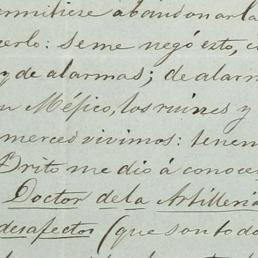 ermitiese abandonar la
cerlo: se me negó esto, c
y de alarmas; de alarm
n Méjico, los ruines y
merced vivimos: tenem
Brito me dió á conoce
Doctor de la Artillería
desafectos (que son todo